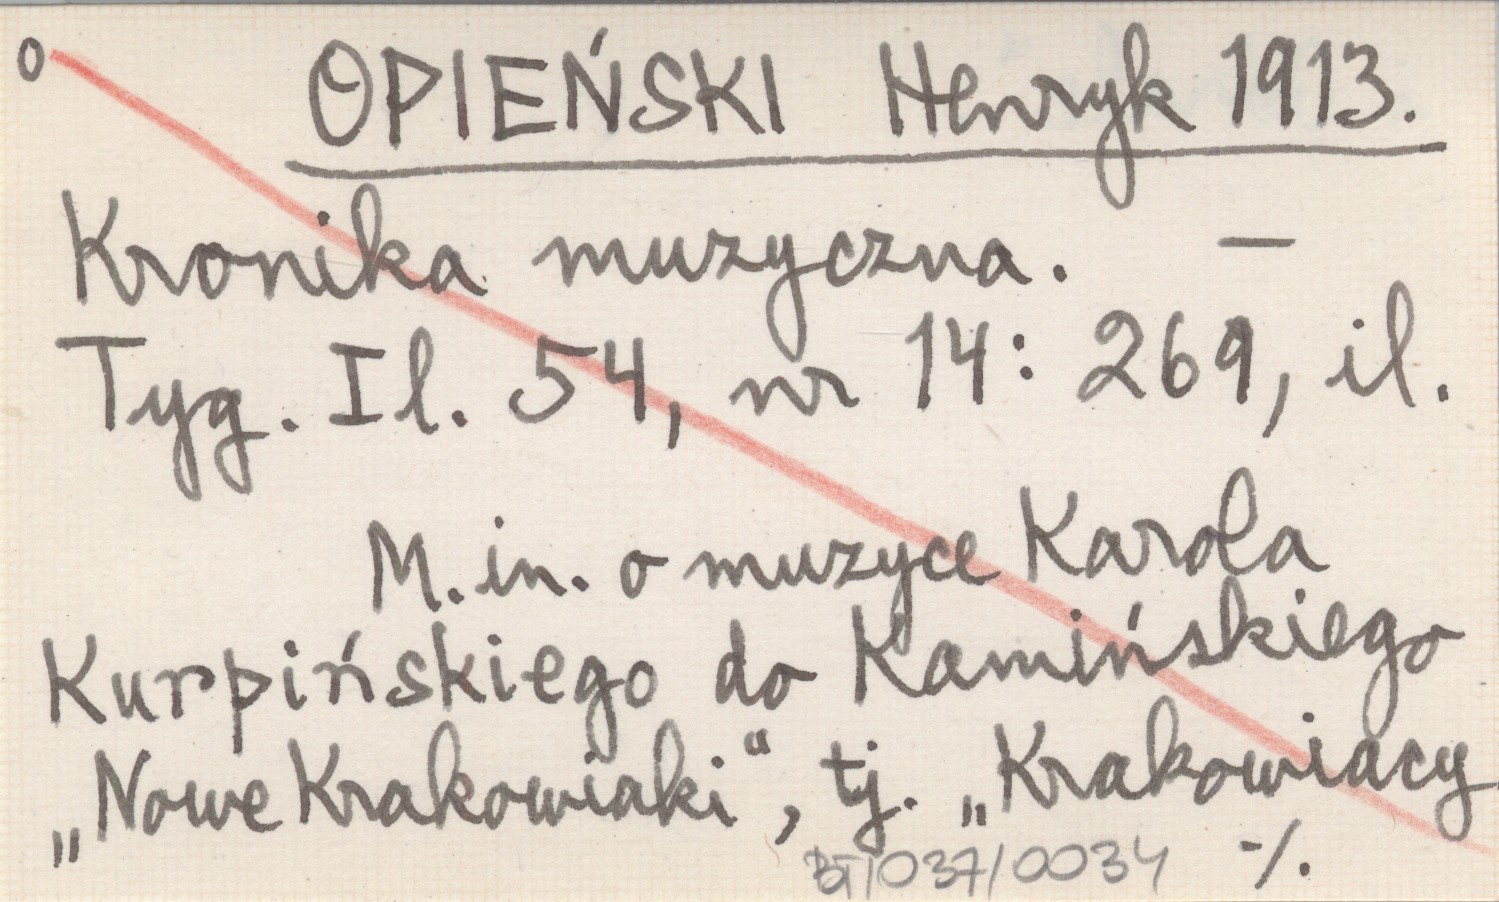 o
OPIEŃSKI Henryk 1913.
Kronika muzyczna. —
Tyg. Il. 54, nr 14: 269, il.
M. in. o muzyce Karola
Kurpińskiego do Kamińskiego
„Nowe Krakowiaki“, tj. „Krakowiacy
BT/037/0034 -/.